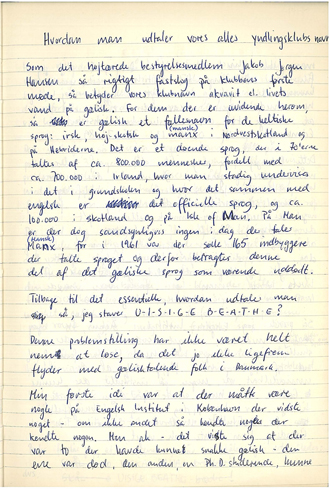 Hvordan man udtaler vores alles yndlingsklubs navn
Som det højtærede bestyrelsesmedlem Jakob Jørgen
Hansen så rigtigt fastslog på klubbens første
møde, så betyder vores klubnavn akvavit el. livets
vand på gælisk. For dem, der er uvidende herom,
så er gælisk et fællesnavn for de keltiske
sprog: irsk, høj-skotsk og manx (mansk) i Nordvestskotland og
på Hebriderne. Det er et døende sprog, der i 70'erne
taltes af ca. 800.000 mennesker, fordelt med
ca. 700.000 i Irland, hvor man stadig underviser
i det i grundskolen og hvor det sammen med
engelsk er det officielle sprog, og ca.
100.000 i Skotland og på Isle of Man. På Man
er der dog sandsynligvis ingen i dag, de taler
Manx (Mansk), for i 1961 var der sølle 165 indbyggere
der talte sproget og derfor betragtes denne
del af det gæliske sprog som værende uddødt.
Tilbage til det essentielle, hvordan udtaler man
så, jeg staver U-I-S-I-G-E B-E-A-T-H-E?
Denne problemstilling har ikke været helt
nem at løse, da det jo ikke ligefrem
flyder med gælisktalende folk i Danmark.
Min første idé var at der måtte være
nogle på Engelsk Institut i København der vidste
noget - om ikke andet så kendte nogle der
kendte nogen. Men ak - det viste sig at der
var to der havde kunnet snakke gælisk - den
ene var død, den anden, en Ph.D. studerende, kunne